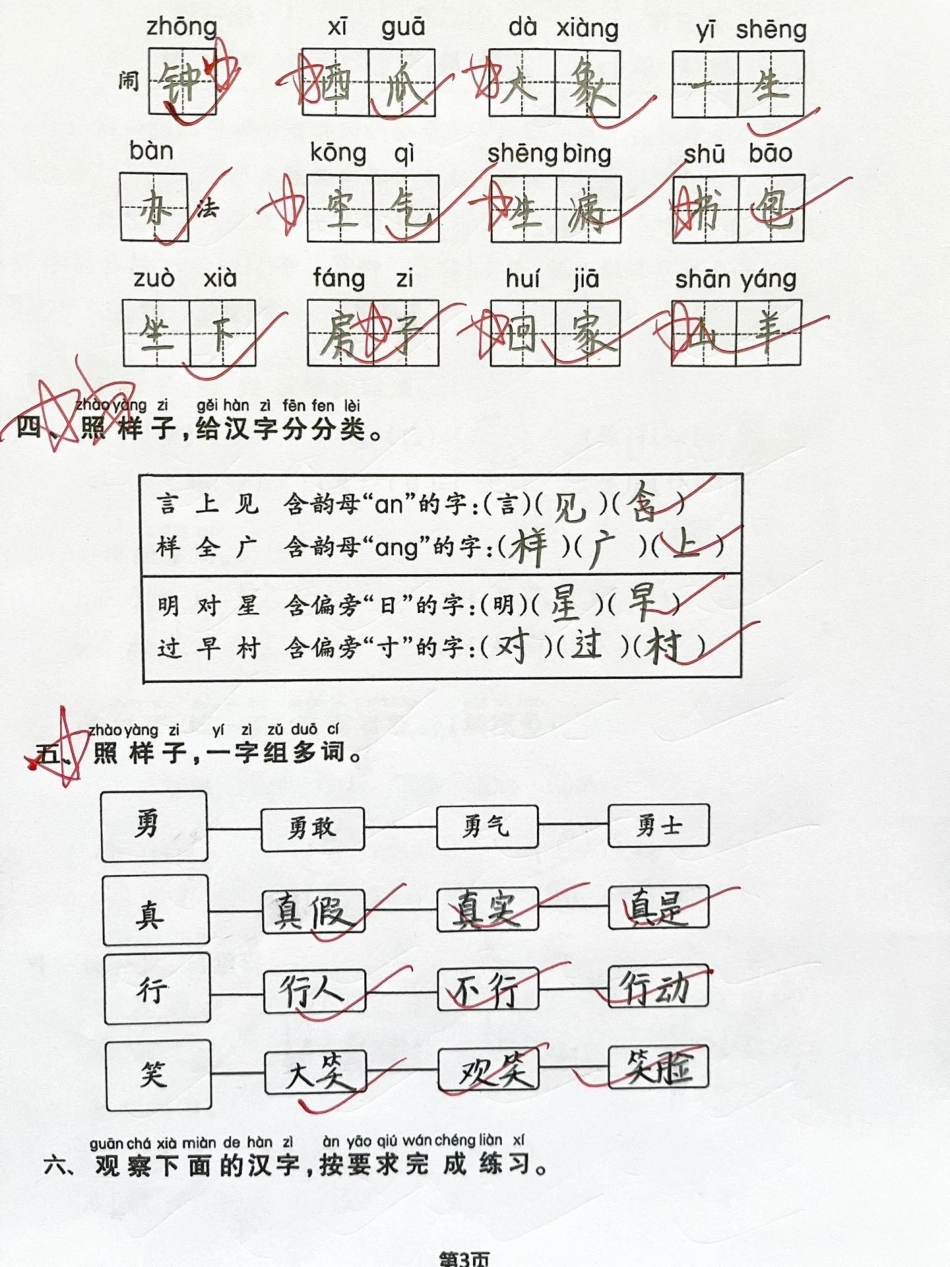 zhōng xī guā dà xiàng yī shēng
闹 钟 西 瓜 大 象 一 生
bàn kōng qì shēng bìng shū bāo
办 法 空 气 生 病 书 包
zuò xià fáng zi huí jiā shān yáng
坐 下 房 子 回 家 山 羊
zhào yàng zi gěi hàn zì fēn fen lèi
四、照样子,给汉字分分类。
言 上 见 含韵母“an”的字:(言)( 见 )( 含 )
样 全 广 含韵母“ang”的字:( 样 )( 广 )( 上 )
明 对 星 含偏旁“日”的字:(明)( 星 )( 早 )
过 早 村 含偏旁“寸”的字:( 对 )( 过 )( 村 )
zhào yàng zi yí zì zǔ duō cí
五、照样子,一字组多词。
勇 勇敢 勇气 勇士
真 真假 真实 真是
行 行人 不行 行动
笑 大笑 欢笑 笑脸
guān chá xià miàn de hàn zì àn yāo qiú wán chéng liàn xí
六、观察下面的汉字,按要求完成练习。
第3页